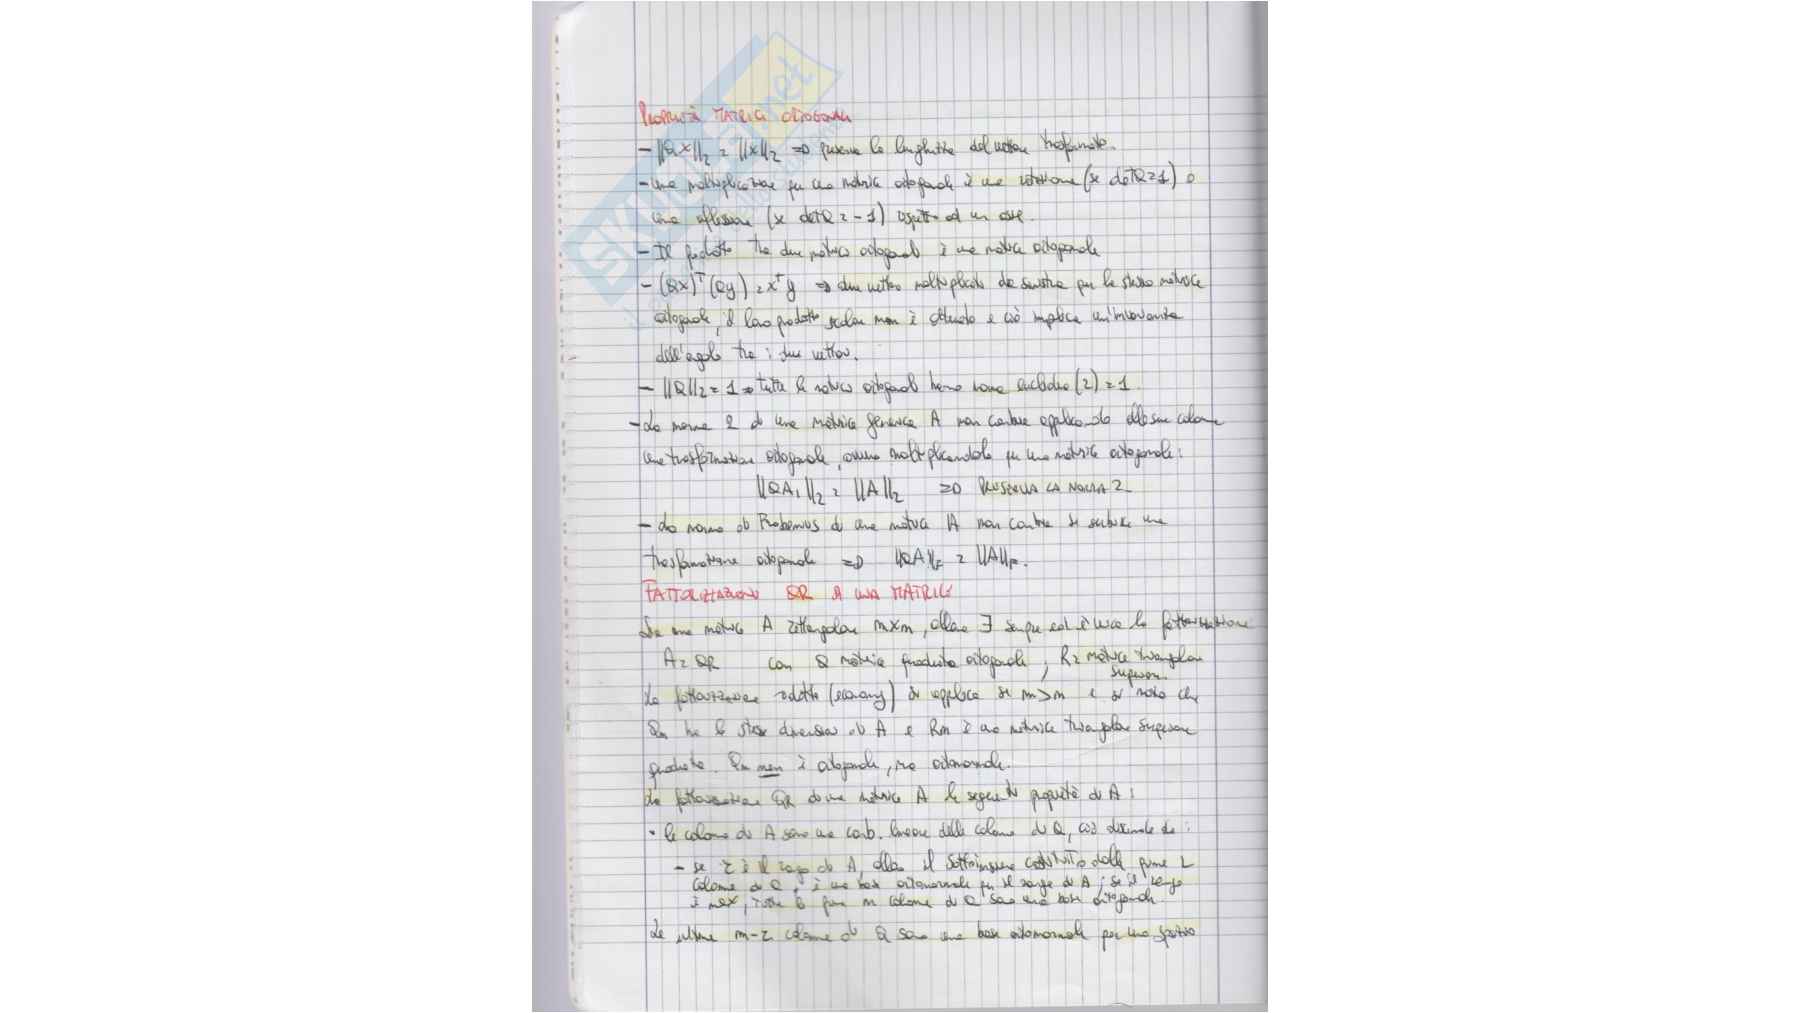 PROPRIETÀ MATRICI ORTOGONALI
- ||Qx||₂ = ||x||₂ => preserva la lunghezza del vettore trasformato.
- una moltiplicazione per una matrice ortogonale è una rotazione (se detQ=1) o
una riflessione (se detQ = -1) rispetto ad un asse.
- Il prodotto tra due matrici ortogonali è una matrice ortogonale
- (Qx)ᵀ(Qy) = xᵀy => due vettori moltiplicati da sinistra per la stessa matrice
ortogonale, il loro prodotto scalare non è alterato e ciò implica un'invarianza
dell'angolo tra i due vettori.
- ||Q||₂ = 1 => tutte le matrici ortogonali hanno norma euclidea (2) = 1.
- La norma 2 di una matrice generica A non cambia applicando alle sue colonne
una trasformazione ortogonale, ovvero moltiplicandola per una matrice ortogonale:
||QA₁||₂ = ||A||₂ => PRESERVA LA NORMA 2
- La norma di Frobenius di una matrice A non cambia se subisce una
trasformazione ortogonale => ||QA||F = ||A||F.
FATTORIZZAZIONE QR DI UNA MATRICE
Sia una matrice A rettangolare m×n, allora ∃ sempre ed è unica la fattorizzazione
A = QR con Q matrice quadrata ortogonale, R = matrice triangolare
superiore.
La fattorizzazione ridotta (economy) si applica se m>n e si nota che
Qn ha le stesse dimensioni di A e Rn è una matrice triangolare superiore
quadrata. Qn non è ortogonale, ma ortonormale.
La fattorizzazione QR di una matrice A le seguenti proprietà di A:
• le colonne di A sono una comb. lineare delle colonne di Q, ciò
- se r è il rango di A, allora il sottoinsieme costituito dalle prime r
colonne di Q, è una base ortonormale per il range di A; se il rango
è max, tutte le prime n colonne di Q sono una base ortogonale.
Le ultime m-r colonne di Q sono una base ortonormale per uno spazio